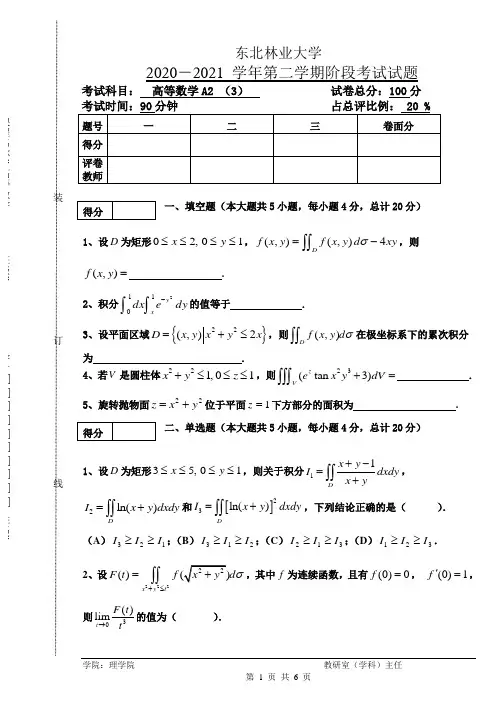 东北林业大学
2020－2021 学年第二学期阶段考试试题
考试科目： 高等数学A2 （3） 试卷总分：100分
考试时间：90分钟 占总评比例： 20 %
题号 一 二 三 卷面分
得分
评卷教师
装
订
线
得分
一、填空题（本大题共5小题，每小题4分，总计20分）
1、设 D 为矩形 0 ≤ x ≤ 2, 0 ≤ y ≤ 1， f(x, y) = ∬_D f(x, y)dσ − 4xy，则
f(x, y) = .
2、积分 ∫_0^1 dx ∫_x^1 e^{−y^2} dy 的值等于 .
3、设平面区域 D = {(x, y)|x^2 + y^2 ≤ 2x}，则 ∬_D f(x, y)dσ 在极坐标系下的累次积分
为 .
4、若 V 是圆柱体 x^2 + y^2 ≤ 1, 0 ≤ z ≤ 1，则 ∭_V (e^z tan x^2 y^3 + 3)dV = .
5、旋转抛物面 z = x^2 + y^2 位于平面 z = 1 下方部分的面积为 .
得分
二、单选题（本大题共5小题，每小题4分，总计20分）
1、设 D 为矩形 3 ≤ x ≤ 5, 0 ≤ y ≤ 1，则关于积分 I_1 = ∬_D (x + y − 1)/(x + y) dxdy，
I_2 = ∬_D ln(x + y)dxdy 和 I_3 = ∬_D [ln(x + y)]^2 dxdy，下列结论正确的是（ ）.
（A）I_3 ≥ I_2 ≥ I_1；（B）I_3 ≥ I_1 ≥ I_2；（C）I_2 ≥ I_1 ≥ I_3；（D）I_1 ≥ I_2 ≥ I_3．
2、设 F(t) = ∬_{x^2+y^2≤t^2} f(√(x^2 + y^2))dσ，其中 f 为连续函数，且有 f(0) = 0， f′(0) = 1，
则 lim_{t→0} F(t)/t^3 的值为（ ）.
学院：理学院 教研室（学科）主任
第 1 页 共 6 页